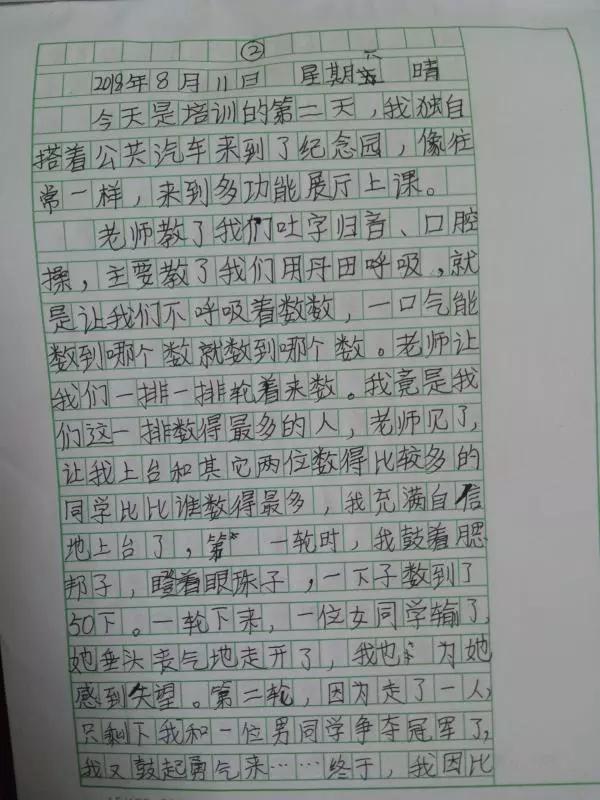 ②
2018年8月11日 星期六 晴
今天是培训的第二天,我独自
搭着公共汽车来到了纪念园,像往
常一样,来到多功能展厅上课。
老师教了我们吐字归音、口腔
操,主要教了我们用丹田呼吸,就
是让我们不呼吸着数数,一口气能
数到哪个数就数到哪个数。老师让
我们一排一排轮着来数。我竟是我
们这一排数得最多的人,老师见了,
让我上台和其它两位数得比较多的
同学比比谁数得最多,我充满自信
地上台了,第一轮时,我鼓着腮
邦子,瞪着眼珠子,一下子数到了
50下。一轮下来,一位女同学输了,
她垂头丧气地走开了,我也为她
感到失望。第二轮,因为走了一人,
只剩下我和一位男同学争夺冠军了,
我又鼓起勇气来……终于,我因比